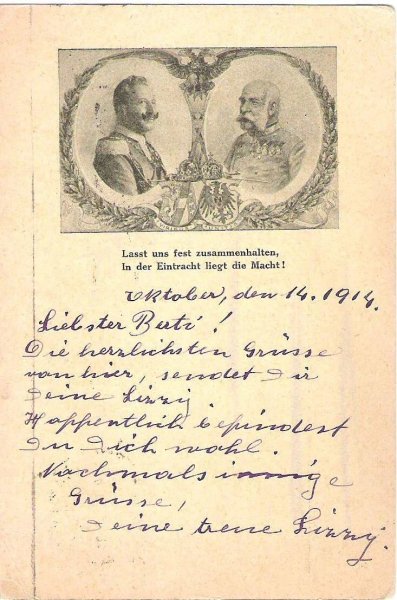 Lasst uns fest zusammenhalten,
In der Eintracht liegt die Macht!
Oktober, den 14. 1914.
Liebster Berti!
Die herzlichsten Grüsse
von hier, sendet Dir
Deine Lizzy.
Hoffentlich befindest
Du Dich wohl.
Nochmals innige
Grüsse,
Deine treue Lizzy.